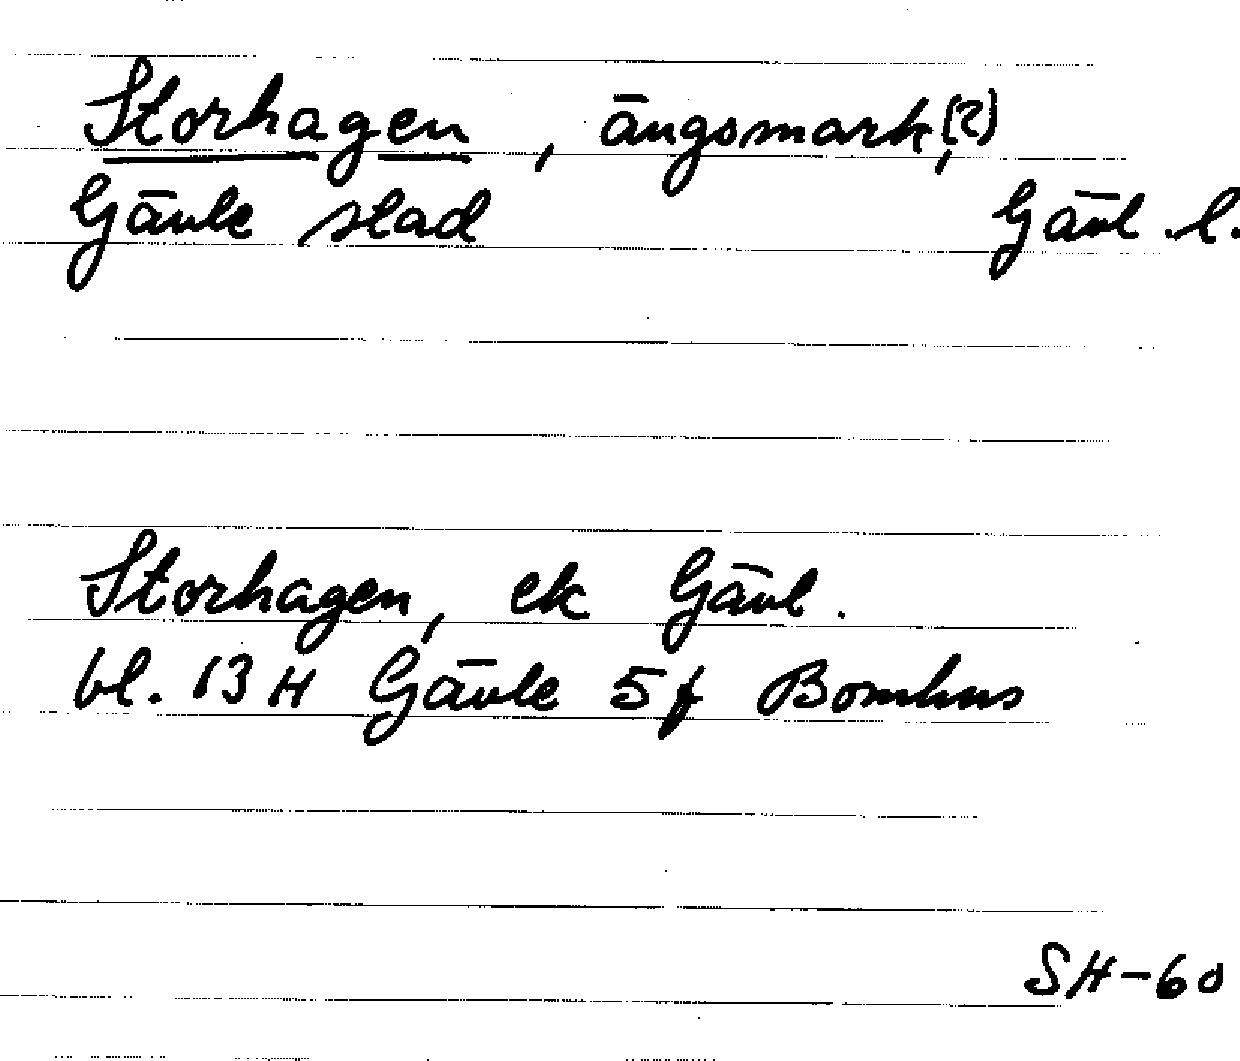 Storhagen, ängsmark,(?)
Gävle stad Gävl. l.
Storhagen, ek Gävl.
bl. 13 H Gävle 5 f Bomhus
SH-60